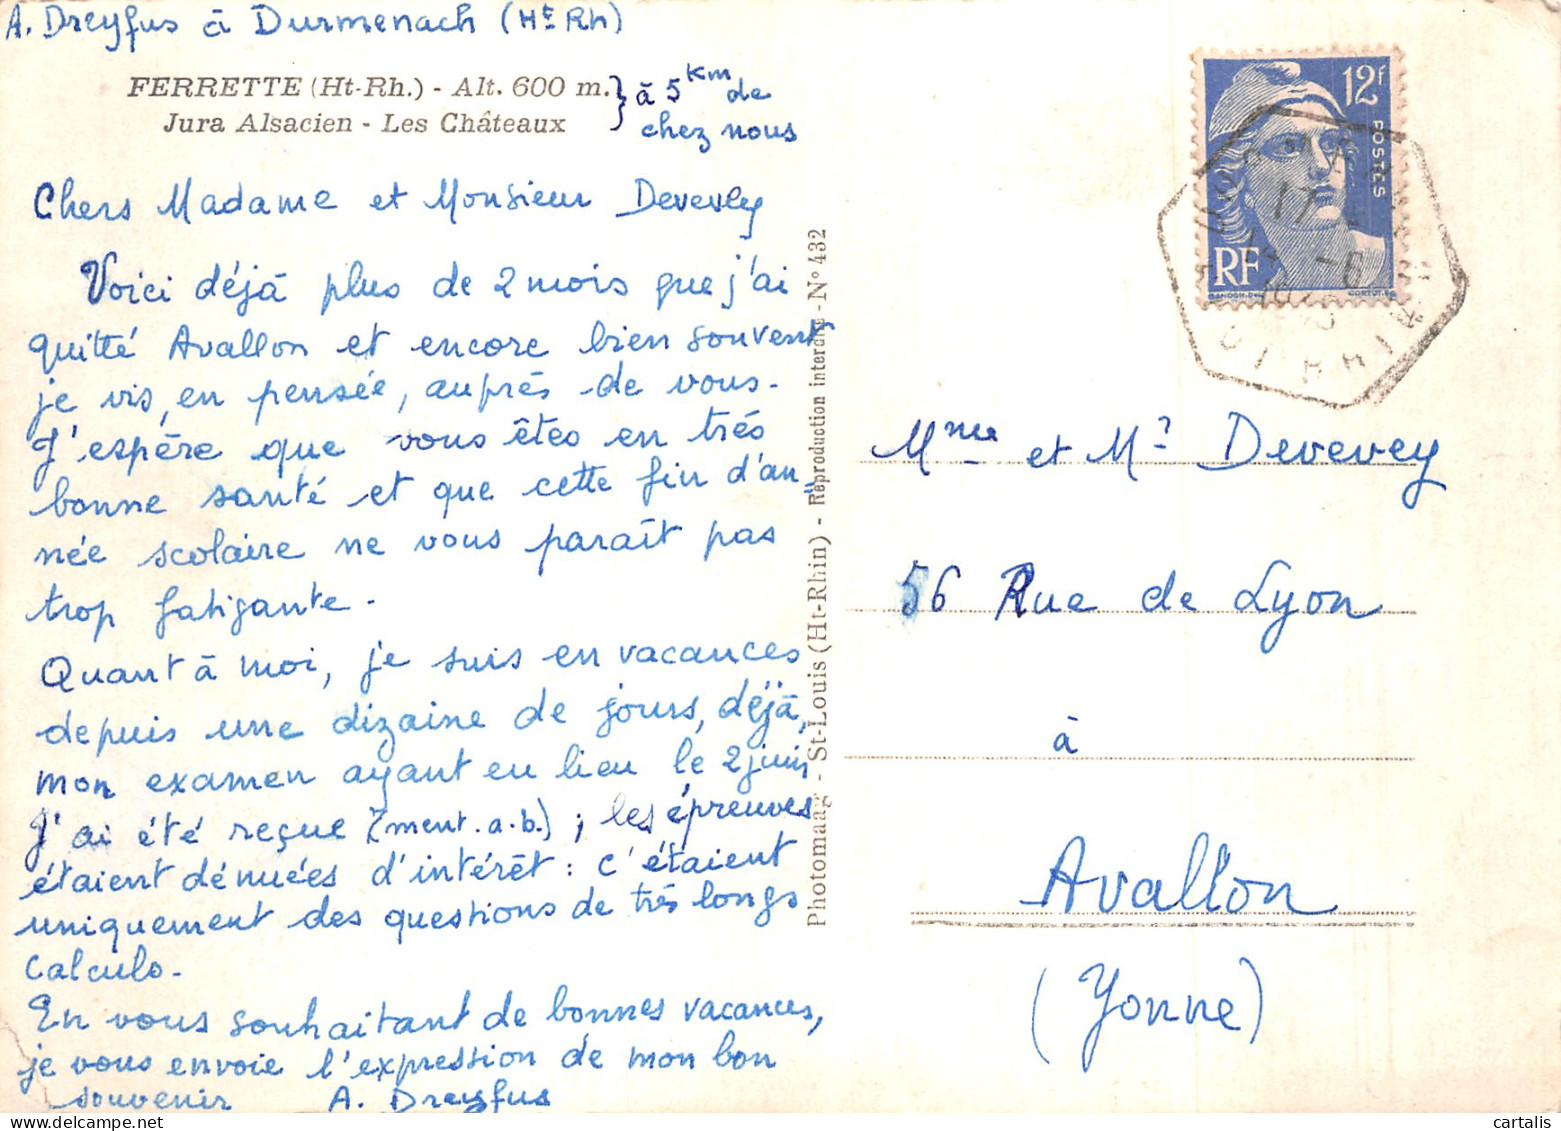 A. Dreyfus à Durmenach (Ht Rh)
FERRETTE (Ht-Rh.) - Alt. 600 m.
Jura Alsacien - Les Châteaux
} à 5 km de
chez nous
Chers Madame et Monsieur Devevey
Voici déjà plus de 2 mois que j'ai
quitté Avallon et encore bien souvent
je vis, en pensée, auprès de vous.
J'espère que vous êtes en très
bonne santé et que cette fin d'an-
née scolaire ne vous paraît pas
trop fatigante.
Quant à moi, je suis en vacances
depuis une dizaine de jours, déjà,
mon examen ayant eu lieu le 2 juin
J'ai été reçue (ment. a.b.) ; les épreuves
étaient dénuées d'intérêt : c'étaient
uniquement des questions de très longs
calculs.
En vous souhaitant de bonnes vacances,
je vous envoie l'expression de mon bon
souvenir A. Dreyfus
Photomaag - St-Louis (Ht-Rhin) - Reproduction interdite - N° 432
12f
POSTES
RF
GANDON
17
-6
Mme et Mr Devevey
56 Rue de Lyon
à
Avallon
(Yonne)
cartalis